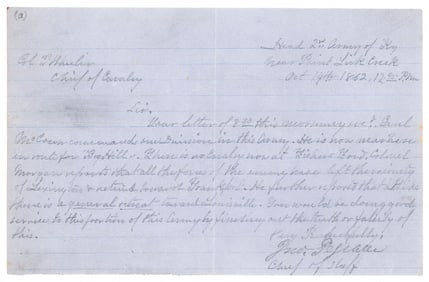 (a)
Head Qrs Army of Ky
Near Paint Lick Creek
Oct 19th 1862, 12 P.M.
Col
Chief of Cavalry
Sir.
Your letter of this morning recd. Genl
McCown commands one Division in this Army. He is now near here
en route for Big Hill. There is no cavalry now at Fishers Ford, Colonel
Morgan reports that all the forces of the enemy have left the vicinity
of Lexington & retired toward Frankfort. He further reports that
there is a general retreat toward Louisville. You would be doing good
service to this portion of this Army by finding out the truth or falsity of
this.
Very Respectfully,
Jno.
Chief of Staff